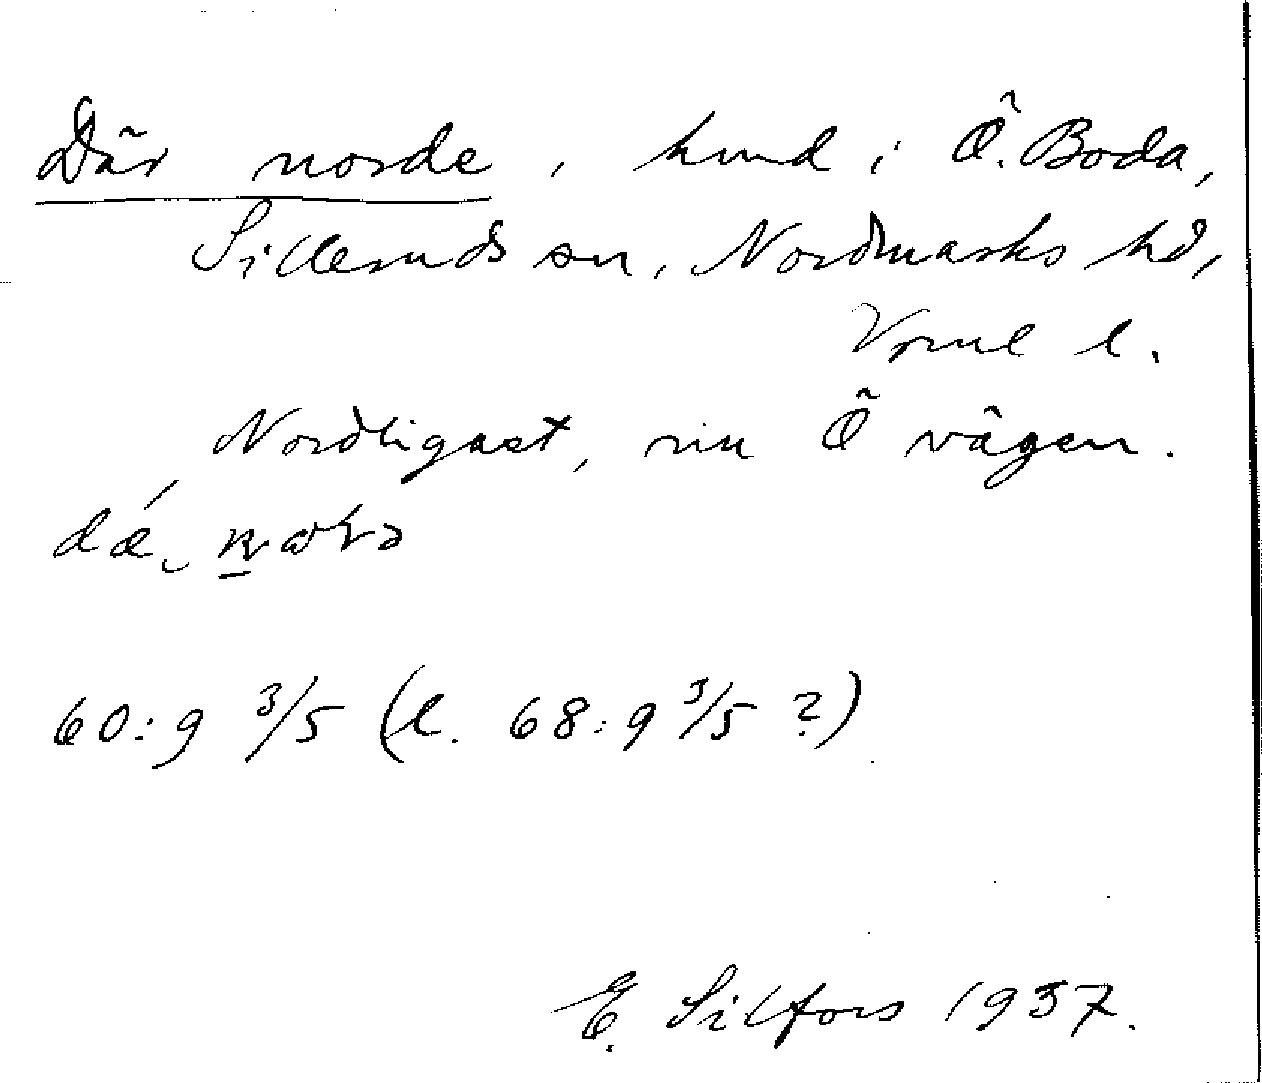 Där norde, hmd i Ö. Boda,
Silleruds sn, Nordmarks hd,
Vrml l.
Nordligast, nu Ö vägen.
60:9 3/5 (l. 68:9 3/5 ?)
E. Silfors 1937.